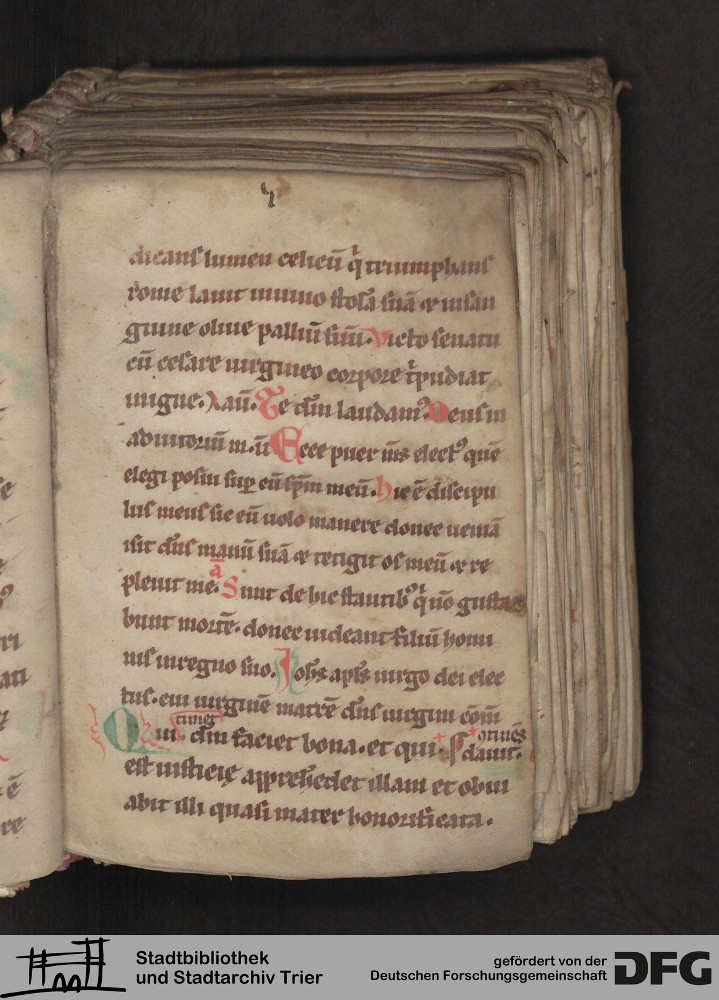 dicans lumen celicū q̄ triumphans
rome lauit in uino stolā suā ⁊ in san
guine oliue palliū suū. Victo senatu
cū cesare uirgineo corpore t̓pudiat
in igne. Te dn̄m laudam᷒ Deus in
adiutoriū m. Ecce puer m̄s elect᷒ quē
elegi posui sup̄ eū sp̄m meū. hic ē discipu
lus meus sic eū uolo manere donec ueniā
isit dn̄s manū suā ⁊ tetigit os meū ⁊ re
pleuit me. a Sunt de hic stantib᷒ q̄ nō gusta
bunt mortē. donec uideant filiū homi
nis in regno suo. Iohs apl̄s uirgo dei elec
tus. cui uirginē matrē dn̄s uirgini cōm̄
Qui timet dn̄m faciet bona. et qui. 9tinēs dauit.
est iusticię apprehēdet illam et obui
abit illi quasi mater honorificata.
Stadtbibliothek
und Stadtarchiv Trier
gefördert von der
Deutschen Forschungsgemeinschaft
DFG